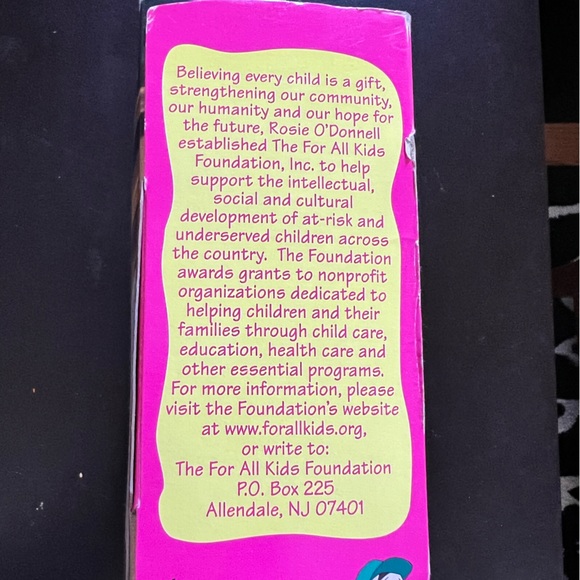 Believing every child is a gift,
strengthening our community,
our humanity and our hope for
the future, Rosie O'Donnell
established The For All Kids
Foundation, Inc. to help
support the intellectual,
social and cultural
development of at-risk and
underserved children across
the country. The Foundation
awards grants to nonprofit
organizations dedicated to
helping children and their
families through child care,
education, health care and
other essential programs.
For more information, please
visit the Foundation's website
at www.forallkids.org,
or write to:
The For All Kids Foundation
P.O. Box 225
Allendale, NJ 07401